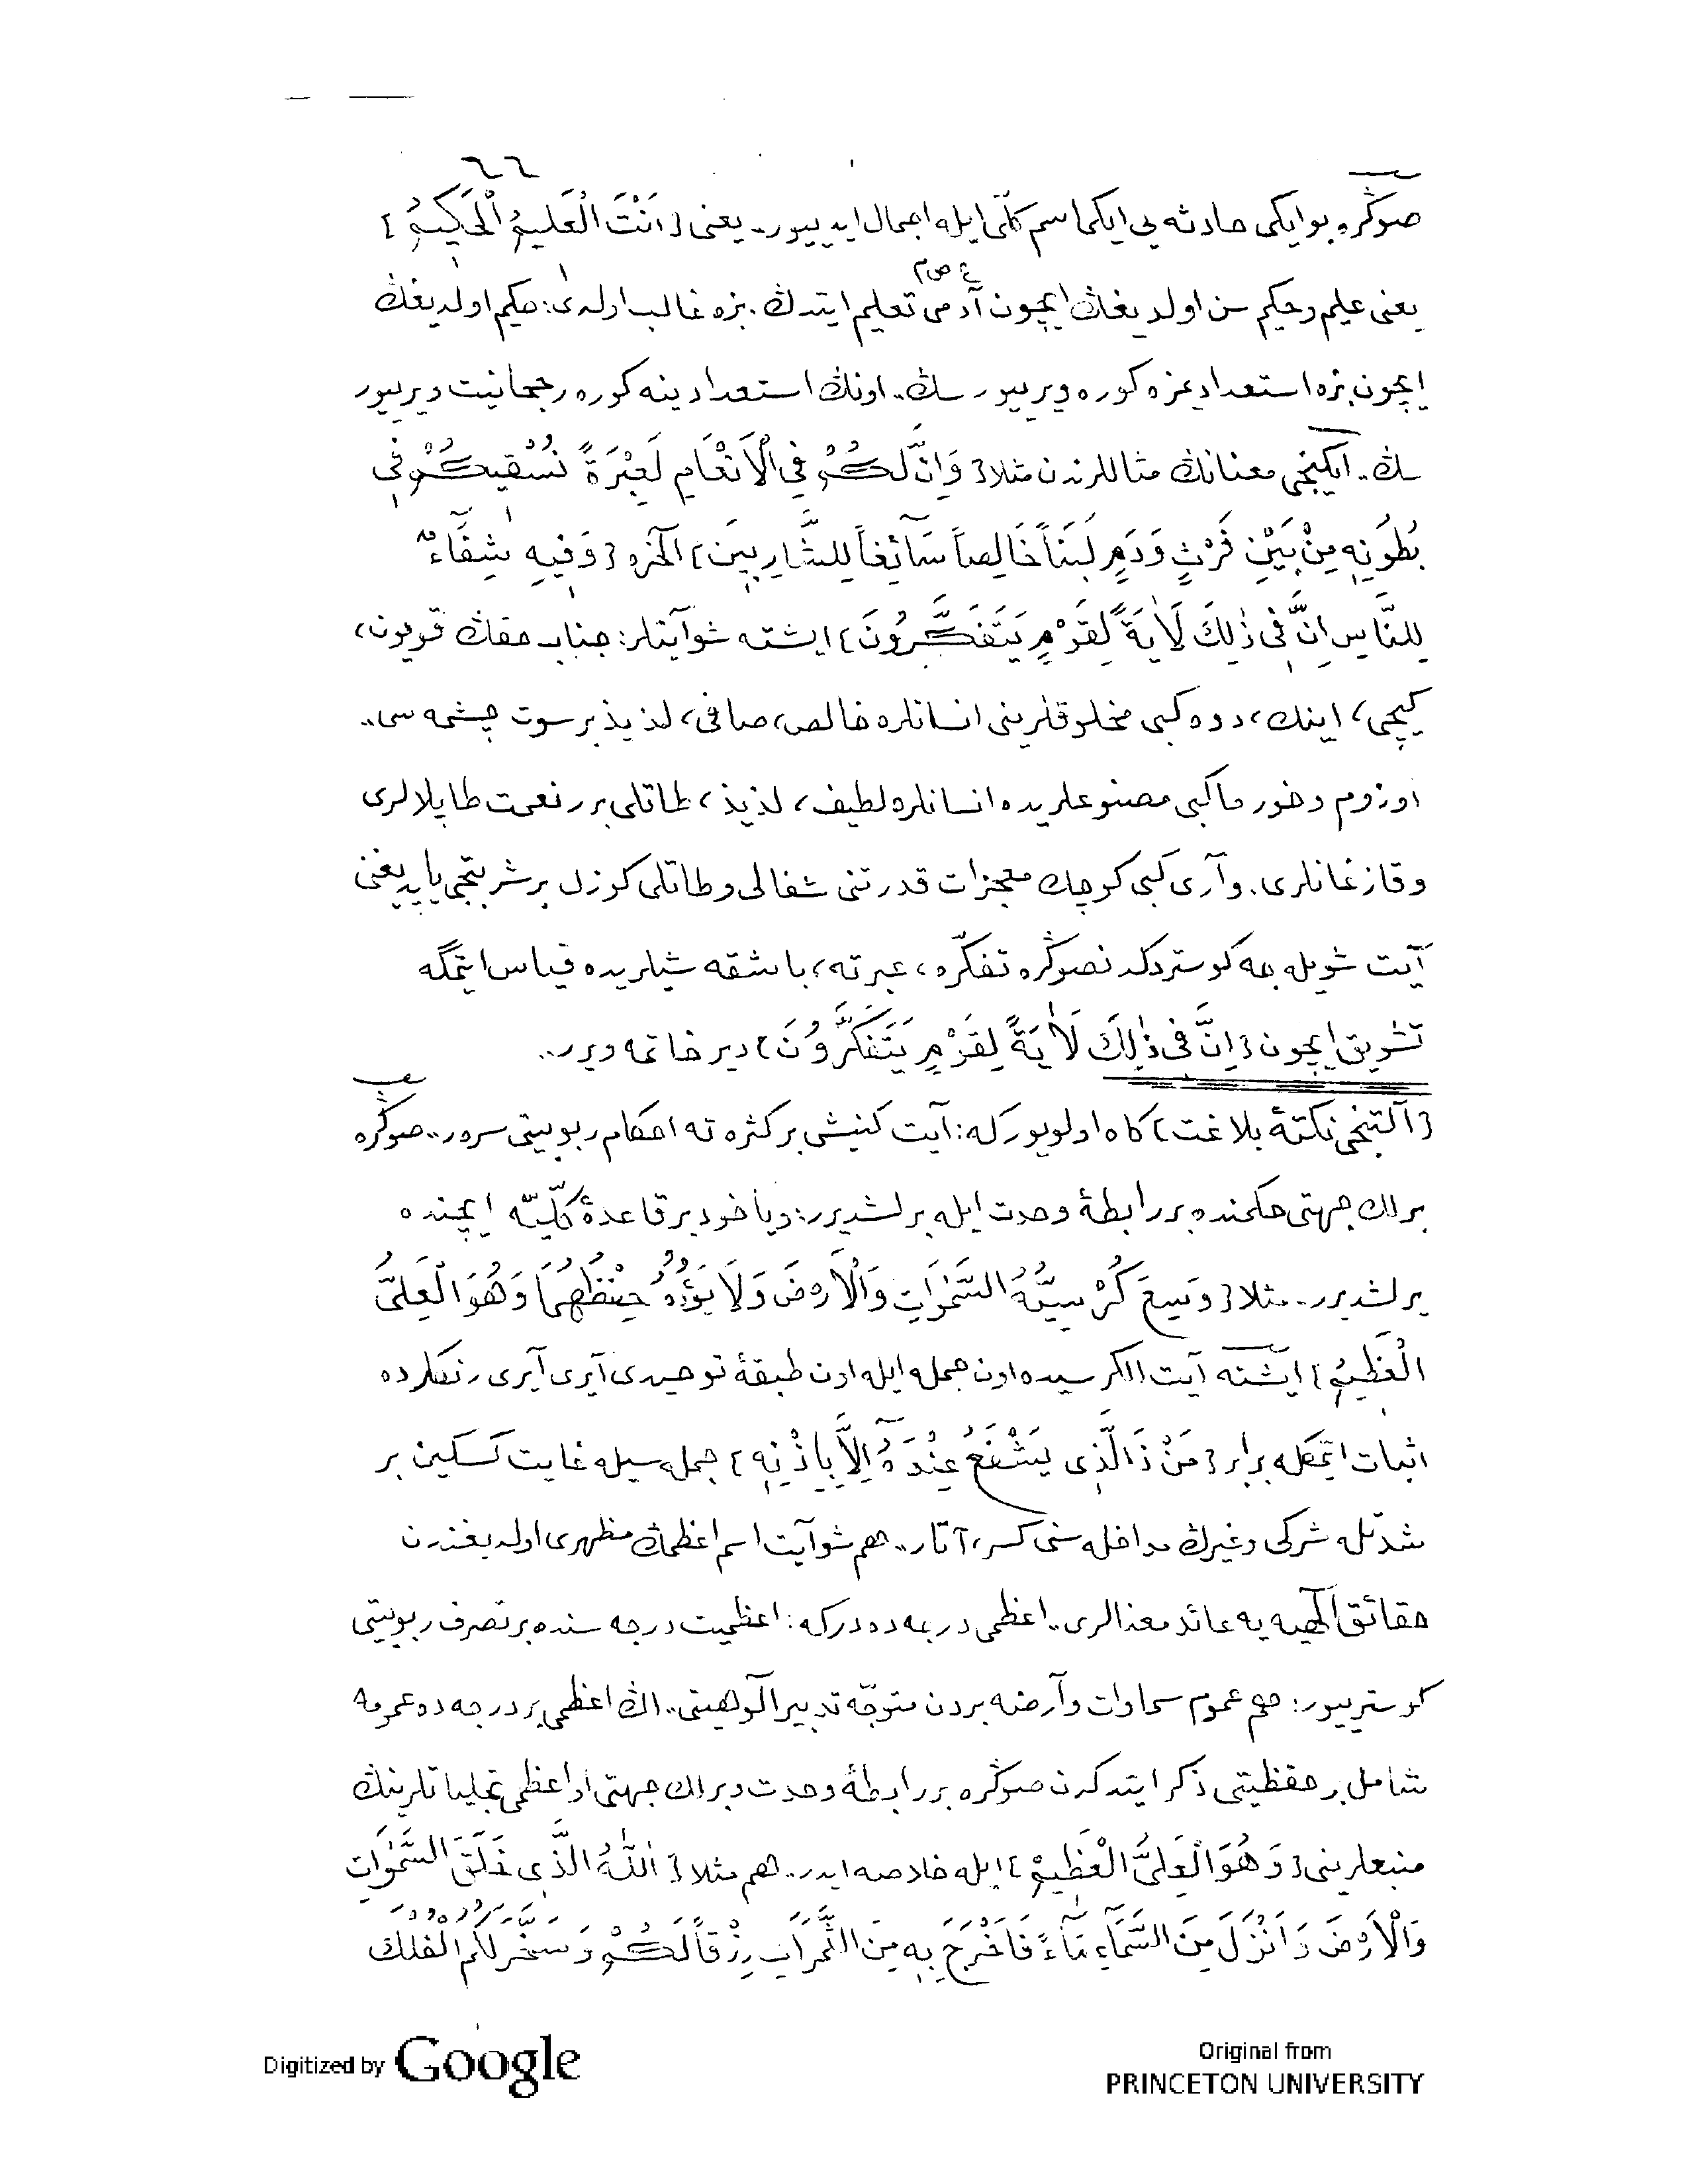 ٦٦
صوڭره بو ایكی حادثه یی ایكی اسم كلّی ایله اجمال ایدییور.. یعنی {اَنْتَ الْعَلیمُ الْحَكیمُ}
یعنی علیم و حكیم سن اولدیغڭ ایچون آدمی تعلیم ایتدڭ. بزه غالب اولدی: حكیم اولدیغڭ
ع ص م
ایچون بزه استعدادیمزه كوره ویرییورسڭ.. اونڭ استعدادینه كوره رجحانیت ویرییور
سڭ.. ایكنجی معنانڭ مثاللرندن مثلا {وَاِنَّ لَكُمْ فِی الْاَنْعَامِ لَعِبْرَةً نُسْقیكُمْ فی
بُطُونِهِ مِنْ بَیْنِ فَرْثٍ وَدَمٍ لَبَنًا خَالِصًا سَآئِغًا لِلشَّارِبینَ} الخره {وَفیهِ شِفَآءٌ
لِلنَّاسِ اِنَّ فی ذٰلِكَ لَاٰیَةً لِقَوْمٍ یَتَفَكَّرُونَ} ایشته شو آیتلر: جناب حقڭ قویون،
كیچی، اینك، دوه كبی مخلوقلرینی انسانلره خالص، صافی، لذیذ بر سوت چشمه سی..
اوزوم و خورما كبی مصنوعلریده انسانلره لطیف، لذیذ، طاتلی برر نعمت طابلالری
و قازغانلری. و آری كبی كوچك معجزات قدرتنی شفالی و طاتلی كوزل بر شربتجی یاپدیغنی
آیت شویله جه كوستردكدنصوڭره تفكّره، عبرته، باشقه شیلریده قیاس ایتمگه
تشویق ایچون {اِنَّ فی ذٰلِكَ لَاٰیَةً لِقَوْمٍ یَتَفَكَّرُونَ} دیر خاتمه ویرر..
{آلتنجی نكتۀ بلاغت} كاه اولویور كه: آیت كنیش بر كثرته احكام ربوبیتی سرر.. صوڭره
برلك جهتی حكمنده بر رابطۀ وحدت ایله برلشدیرر: ویاخود بر قاعدۀ كلّیّه ایچنده
یرلشدیرر.. مثلا {وَسِعَ كُرْسِیُّهُ السَّمٰوَاتِ وَالْاَرْضَ وَلَا یَؤُدُهُ حِفْظُهُمَا وَهُوَ الْعَلِیُّ
الْعَظیمُ} ایشته آیت الكرسیده اون جمله ایله اون طبقۀ توحیدی آیری آیری رنكلرده
اثبات ایتمكله برابر {مَنْ ذَا الَّذی یَشْفَعُ عِنْدَهُٓ اِلَّا بِاِذْنِهِ} جمله سیله غایت كسكین بر
شدّتله شركی و غیرڭ مداخله سنی كسر، آتار.. هم شو آیت اسم اعظمڭ مظهری اولدیغندن
حقائق الٓهیه یه عائد معنالری.. اعظمی درجه ده در كه: اعظمیت درجه سنده بر تصرف ربوبیتی
كوسترییور: هم عموم سماوات و آرضه بردن متوجّه تدبیر الوهیتی.. اڭ اعظمی بر درجه ده عمومه
شامل بر حفظیتی ذكر ایتدكدن صوڭره بر رابطۀ وحدت و برلك جهتی او اعظمی تجلیاتلرینڭ
منبعلرینی {وَهُوَ الْعَلِیُّ الْعَظیمُ} ایله خلاصه ایدر.. هم مثلا {اَللّٰهُ الَّذی خَلَقَ السَّمٰوَاتِ
وَالْاَرْضَ وَاَنْزَلَ مِنَ السَّمَآءِ مَآءً فَاَخْرَجَ بِهِ مِنَ الثَّمَرَاتِ رِزْقًا لَكُمْ وَسَخَّرَ لَكُمُ الْفُلْكَ
Digitized by Google
Original from
PRINCETON UNIVERSITY